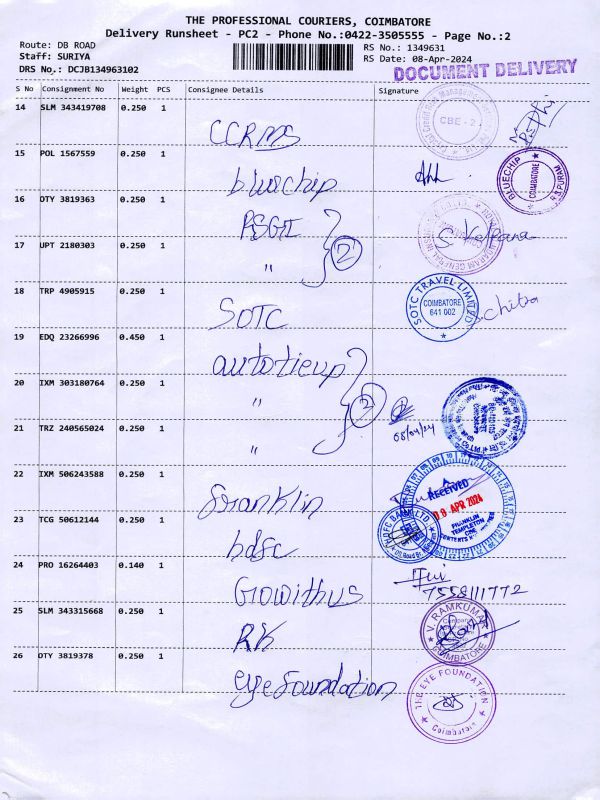 THE PROFESSIONAL COURIERS, COIMBATORE
Delivery Runsheet - PC2 - Phone No.:0422-3505555 - Page No.:2
Route: DB ROAD
Staff: SURIYA
DRS No.: DCJB134963102
RS No.: 1349631
RS Date: 08-Apr-2024
DOCUMENT DELIVERY
S No Consignment No Weight PCS Consignee Details Signature
14 SLM 343419708 0.250 1
CCRMS
CBE - 2
15 POL 1567559 0.250 1
bluechip
BLUECHIP COIMBATORE R.S.PURAM
16 OTY 3819363 0.250 1
RSGI
2
17 UPT 2180303 0.250 1
"
S. Kalpana
18 TRP 4905915 0.250 1
SOTC
SOTC TRAVEL LIMITED
COIMBATORE
641 002
Schitra
19 EDQ 23266996 0.450 1
autotieup
2
20 IXM 303180764 0.250 1
"
08/04/24
21 TRZ 240565024 0.250 1
"
22 IXM 506243588 0.250 1
franklin
RECEIVED
08 APR 2024
FRANKLIN
TEMPLETON
CBE
23 TCG 50612144 0.250 1
hdfc
HDFC BANK LTD
24 PRO 16264403 0.140 1
Gowithus
7558111772
25 SLM 343315668 0.250 1
RK
V. RAMKUMAR
COIMBATORE
26 OTY 3819378 0.250 1
eye foundation
THE EYE FOUNDATION
Coimbatore